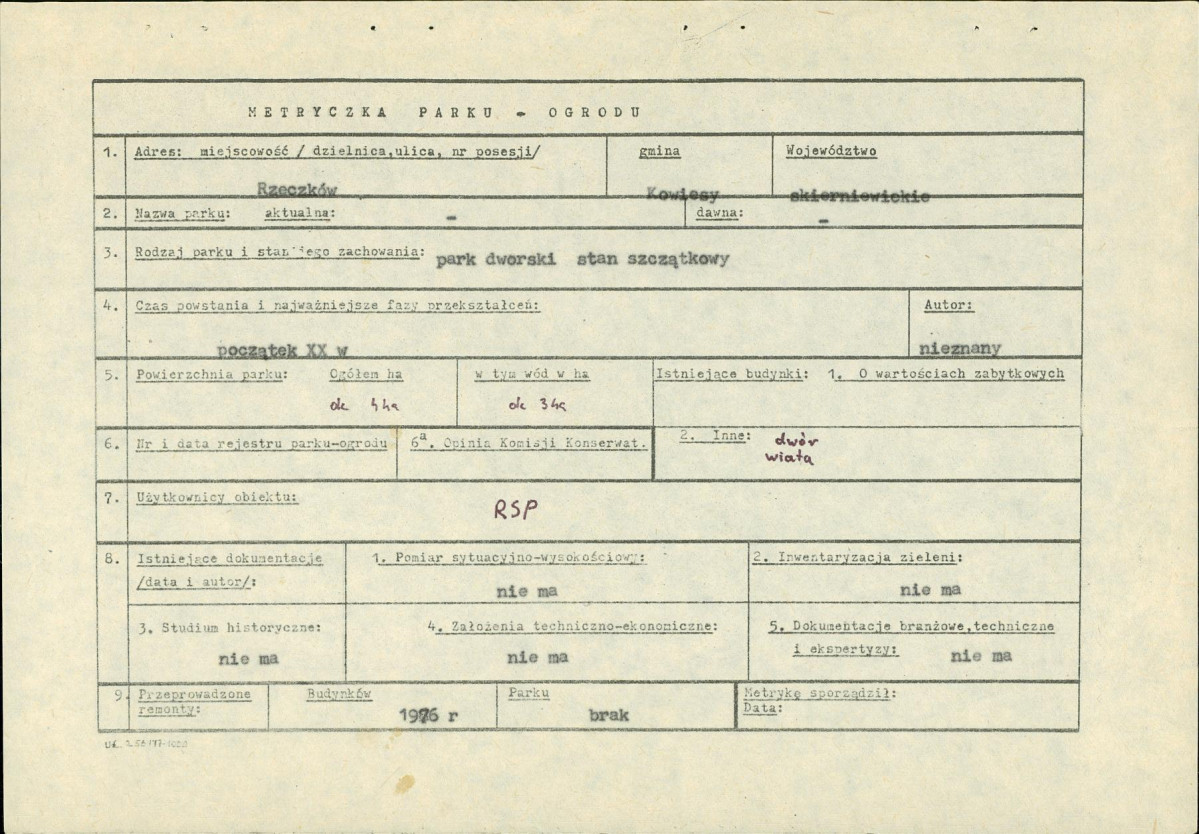 METRYCZKA PARKU - OGRODU
1. Adres: miejscowość / dzielnica,ulica, nr posesji/ gmina Województwo
Rzeczków Kowiesy skierniewickie
2. Nazwa parku: aktualna: - dawna: -
3. Rodzaj parku i stan jego zachowania: park dworski stan szczątkowy
4. Czas powstania i najważniejsze fazy przekształceń: Autor:
początek XX w nieznany
5. Powierzchnia parku: Ogółem ha w tym wód w ha Istniejące budynki: 1. O wartościach zabytkowych
ok 4ha ok 3ha
6. Nr i data rejestru parku-ogrodu 6a. Opinia Komisji Konserwat. 2. Inne: dwór
wiata
7. Użytkownicy obiektu:
RSP
8. Istniejące dokumentacje 1. Pomiar sytuacyjno-wysokościowy: 2. Inwentaryzacja zieleni:
/data i autor/:
nie ma nie ma
3. Studium historyczne: 4. Założenia techniczno-ekonomiczne: 5. Dokumentacje branżowe,techniczne
i ekspertyzy: nie ma
nie ma nie ma
9. Przeprowadzone Budynków Parku Metrykę sporządził:
remonty: Data:
1976 r brak